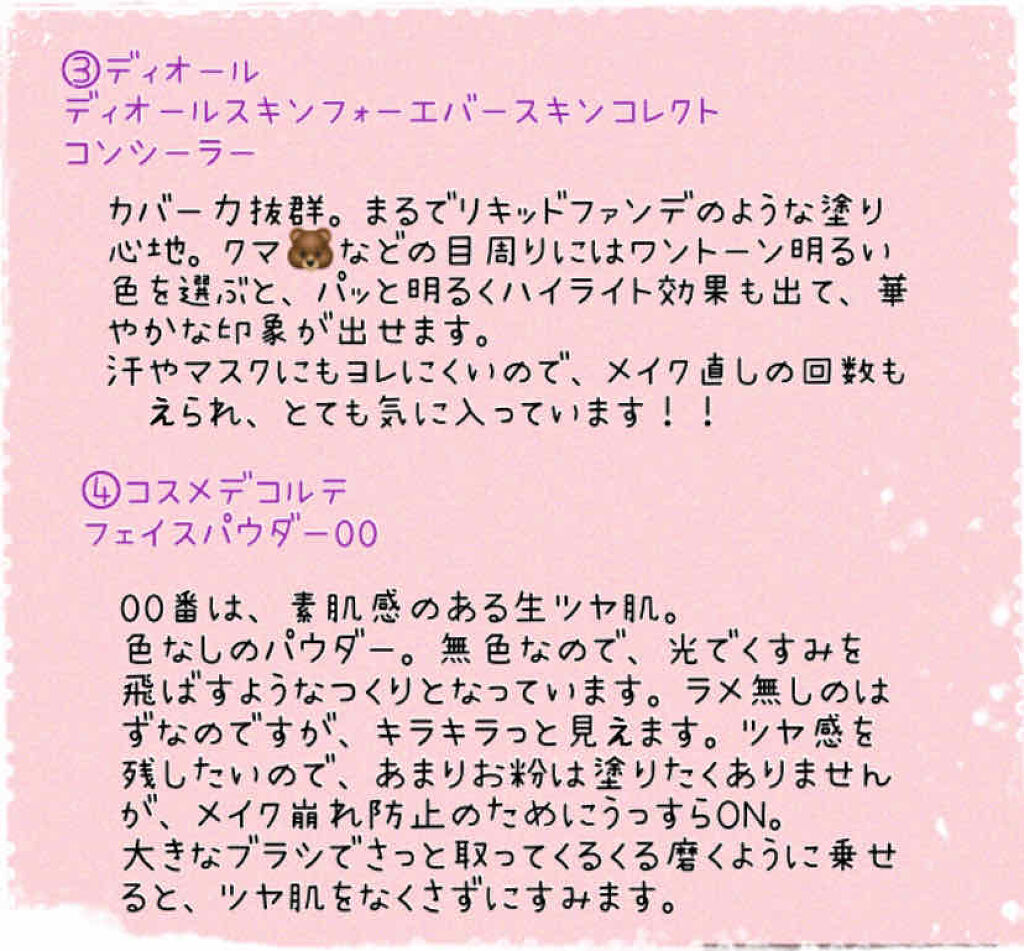 ③ディオール
ディオールスキンフォーエバースキンコレクト
コンシーラー
カバー力抜群。まるでリキッドファンデのような塗り
心地。クマ🐻などの目周りにはワントーン明るい
色を選ぶと、パッと明るくハイライト効果も出て、華
やかな印象が出せます。
汗やマスクにもヨレにくいので、メイク直しの回数も
えられ、とても気に入っています！！
④コスメデコルテ
フェイスパウダー00
00番は、素肌感のある生ツヤ肌。
色なしのパウダー。無色なので、光でくすみを
飛ばすようなつくりとなっています。ラメ無しのは
ずなのですが、キラキラっと見えます。ツヤ感を
残したいので、あまりお粉は塗りたくありません
が、メイク崩れ防止のためにうっすらON。
大きなブラシでさっと取ってくるくる磨くように乗せ
ると、ツヤ肌をなくさずにすみます。